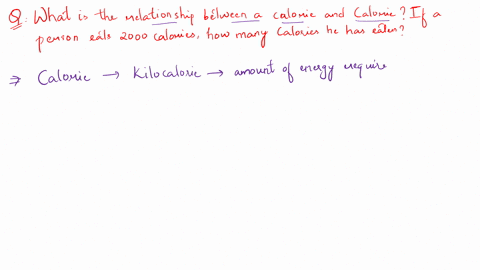 Q: What is the relationship between a calorie and Calorie? If a
person eats 2000 calories, how many Calories he has eaten?
⇒ Calorie → Kilocalorie → amount of energy require